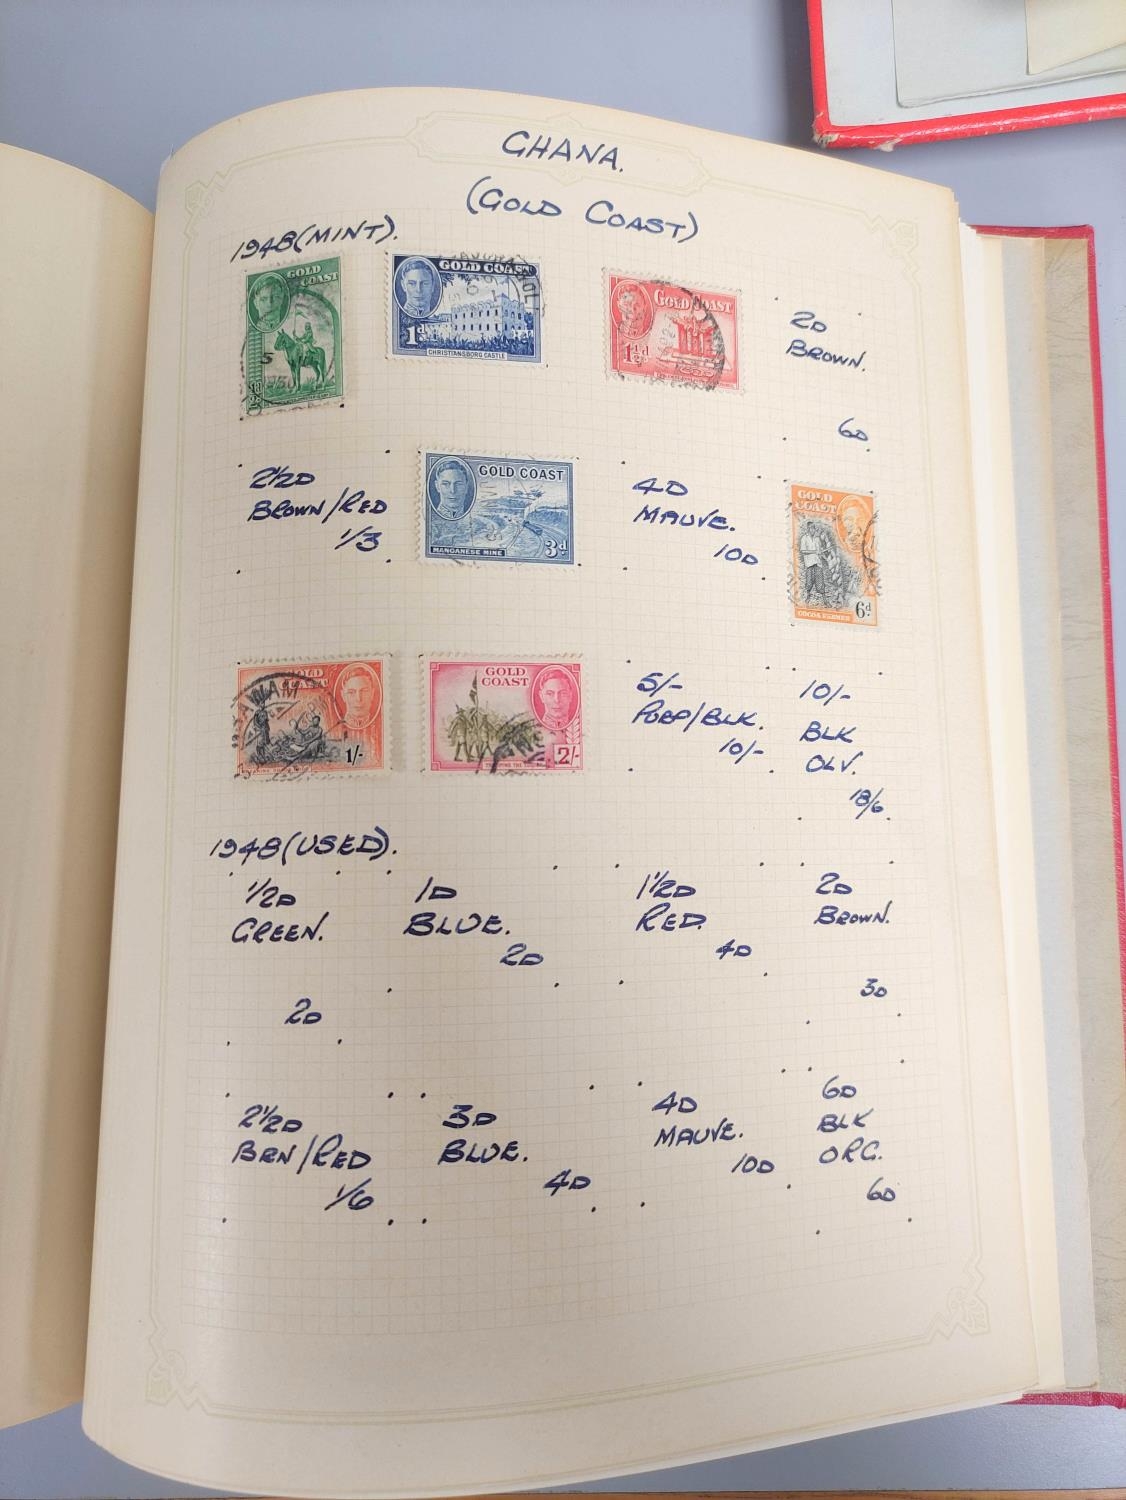 GHANA.
(GOLD COAST)
1948 (MINT).
GOLD COAST
1/2d
GOLD COAST
1d
CHRISTIANSBORG CASTLE
GOLD COAST
1½d
2D
BROWN.
6D
2½D
BROWN/RED
1/3
GOLD COAST
MANGANESE MINE
3d
4D
MAUVE.
10D
GOLD
COAST
COCOA FARMER
6d
SAWAM
GOLD
COAST
1/-
GOLD
COAST
TROOPING THE
2/-
5/-
PURP/BLK.
10/-
10/-
BLK
OLV.
18/6
1948 (USED).
1/2D
GREEN.
2D
1D
BLUE.
2D
1½D
RED.
4D
2D
BROWN.
3D
2½D
BRN/RED
1/6
3D
BLUE.
4D
4D
MAUVE.
10D
6D
BLK
ORG.
6D